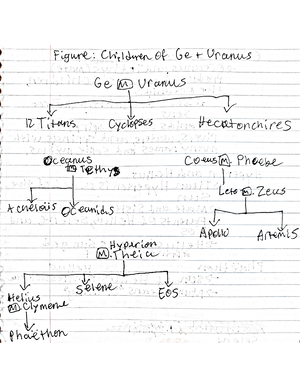 Figure: Children of Ge + Uranus
Ge M Uranus
12 Titans Cyclopses Hecatonchires
Oceanus
M Tethys
Achelous Oceanids
Coeus M Phoebe
Leto M Zeus
Apollo Artemis
Hyperion
M Theia
Helius Selene EOS
M Clymene
Phaëthon